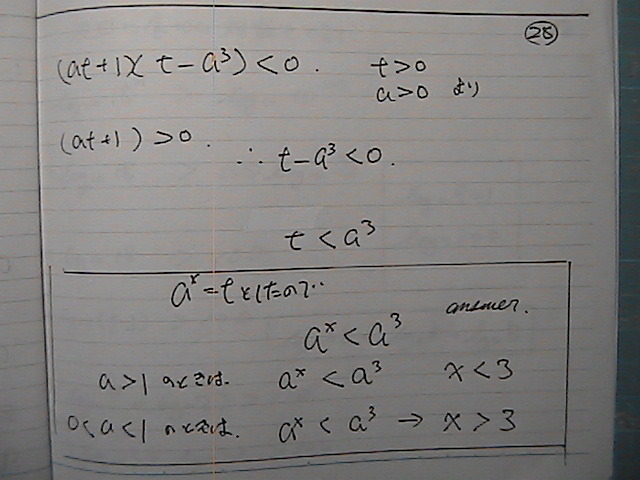 28
(at+1)(t-a³)<0. t>0
a>0 より
(at+1)>0.
∴ t-a³<0.
t<a³
aˣ=tとしたので‥
aˣ<a³ answer.
a>1 のときは. aˣ<a³ x<3
0<a<1 のときは. aˣ<a³ → x>3